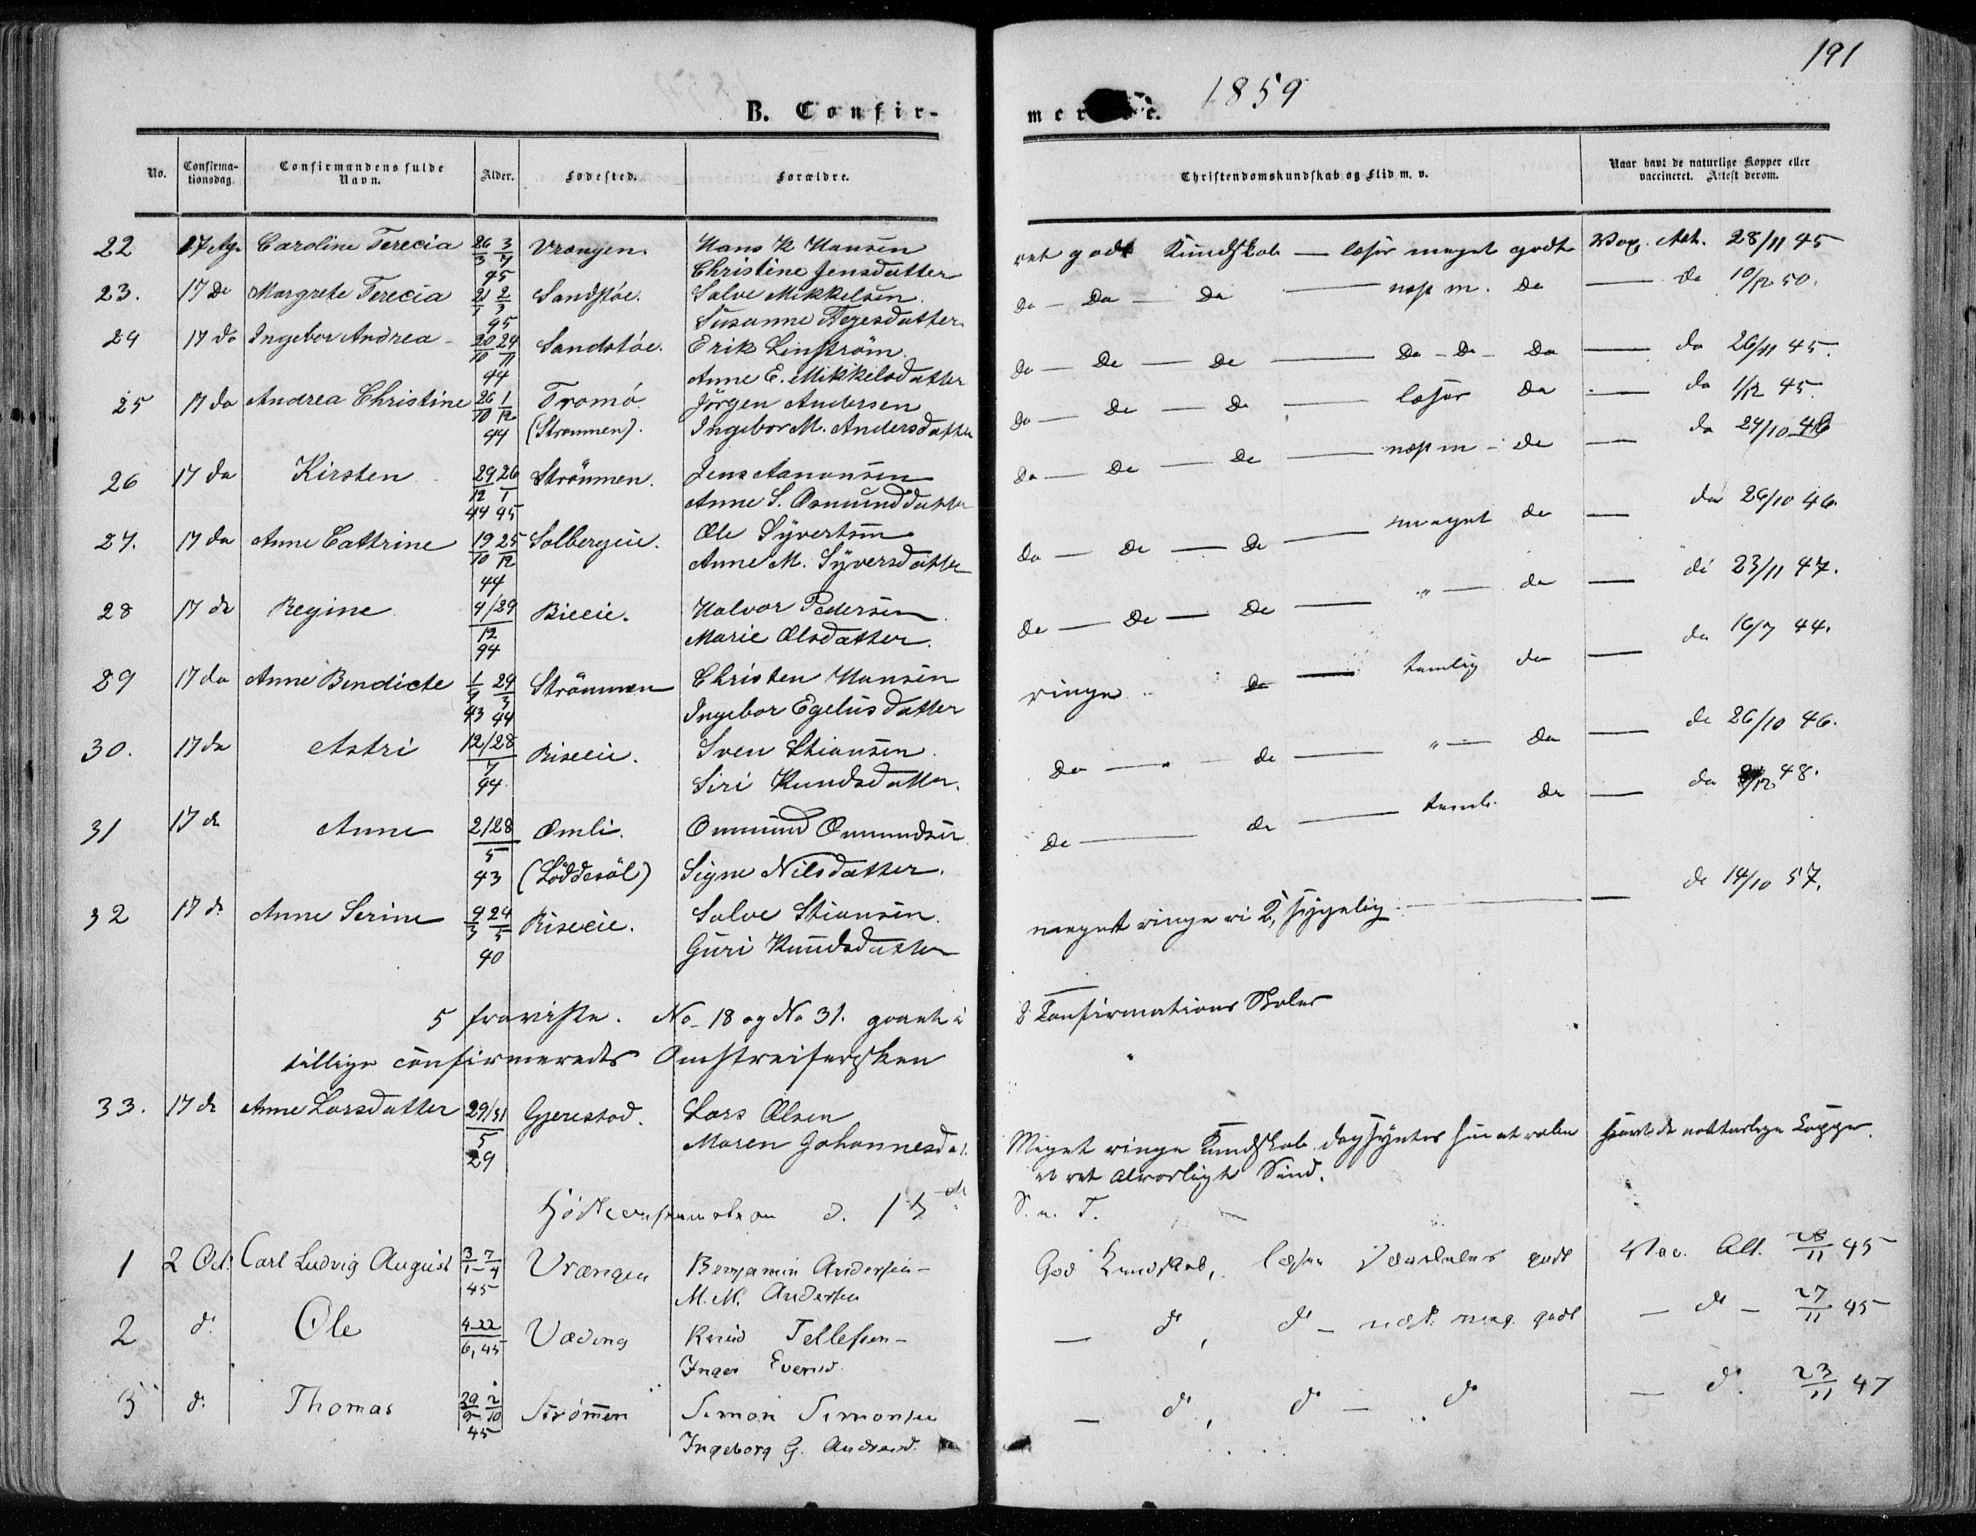 191
1859
B. Confir-
mer e.
No. Confirma-tionsdag. Confirmandens fulde Navn. Alder. Fødested. Forældre. Christendomskundskab og Flid m. v. Naar havt de naturlige Kopper eller vaccineret. Attest derom.
22 17 Ap. Caroline Terecia 26/3 3/4 45 Vrængen. Hans K Hansen ret godt Kundskab — læser meget godt Vax. Att. 28/11 45
Christine Jensdatter
23. 17 do Margrete Terecia 21/1 2/3 45 Sandstøe. Salve Mikkelsen. do — do — do — næst m. do — do 10/12 50.
Susanne Tegesdatter
24 17 do Ingebor Andrea 20/10 24/11 44 Sandstøe. Erik Linstrøm. do — do — do — do - do - do — do 26/11 45.
Anne E. Mikkelsdatter
25 17 do Andrea Christine 26/10 1/12 44 Tromö (Strømmen). Jörgen Andersen do — do — do — læser do — do 1/12 45.
Ingebor M. Andersdatter
26 17 do Kirsten 29/12 26/1 44 45 Strömmen. Jens Aanonsen do — do — do — næst m - do — do 24/10 46
Anne S. Osmunddatter
27. 17 do Anne Cathrine 19/10 25/12 44 Solbergeie. Ole Syvertsen do — do — do — meget do — do 26/10 46.
Anne M. Syversdatter
28 17 do Regine 4/29 12 44 Bieeie. Halvor Pedersen do — do — do — " — do — do 23/11 47.
Marie Olsdatter.
29 17 do Anne Bendicte 1/9 29/3 43 44 Strömmen Christen Hansen ringe do — temlig do — do 16/7 44.
Ingebor Egelusdatter
30. 17 do Astri 12/28 7 44 Riseeie. Sven Stiansen. do — " - do — " — do — do 26/10 46.
Siri Knudsdatter.
31 17 do Anne 2/28 5 43 Omli. (Løddesöl) Onmund Onmundsen do — do — teml. do — do /12 48.
Signe Nilsdatter.
32 17 do Anne Serine 9/3 24/5 40 Riseeie. Salve Stiansen. meget ringe i K, sygelig — — do 14/10 57.
Guri Knudsdatter
5 fraviste. No 18 og No 31. gaaet i 2 Confirmations Skoler
tillige confirmeredes Omstreifersken
33. 17 do Anne Larsdatter 29/31 5 29 Gjerestad. Lars Olsen Meget ringe Kundskab dog syntes hun at røbe havt de naturlige Kopper.
Maren Johannesd. et ret alvorligt Sind.
d. 15de S. e. T.
1 2 Oct. Carl Ludvig August 3/1 - 7/4 45 Vrængen Benjamin Andersen - God Kundskab, læser godt Vac. Att. 28/11 45
M. M. Andersen
2 do Ole 4-22 6, 45 Væding Knud Tellefsen - — do, do - næst. meg. godt — do — 27/11 45
Inger Evensd.
3 do Thomas 29/9 2/10 45 Strømmen Simon Simonsen — do, do — do — do. 23/11 47
Ingeborg G. Andersd.